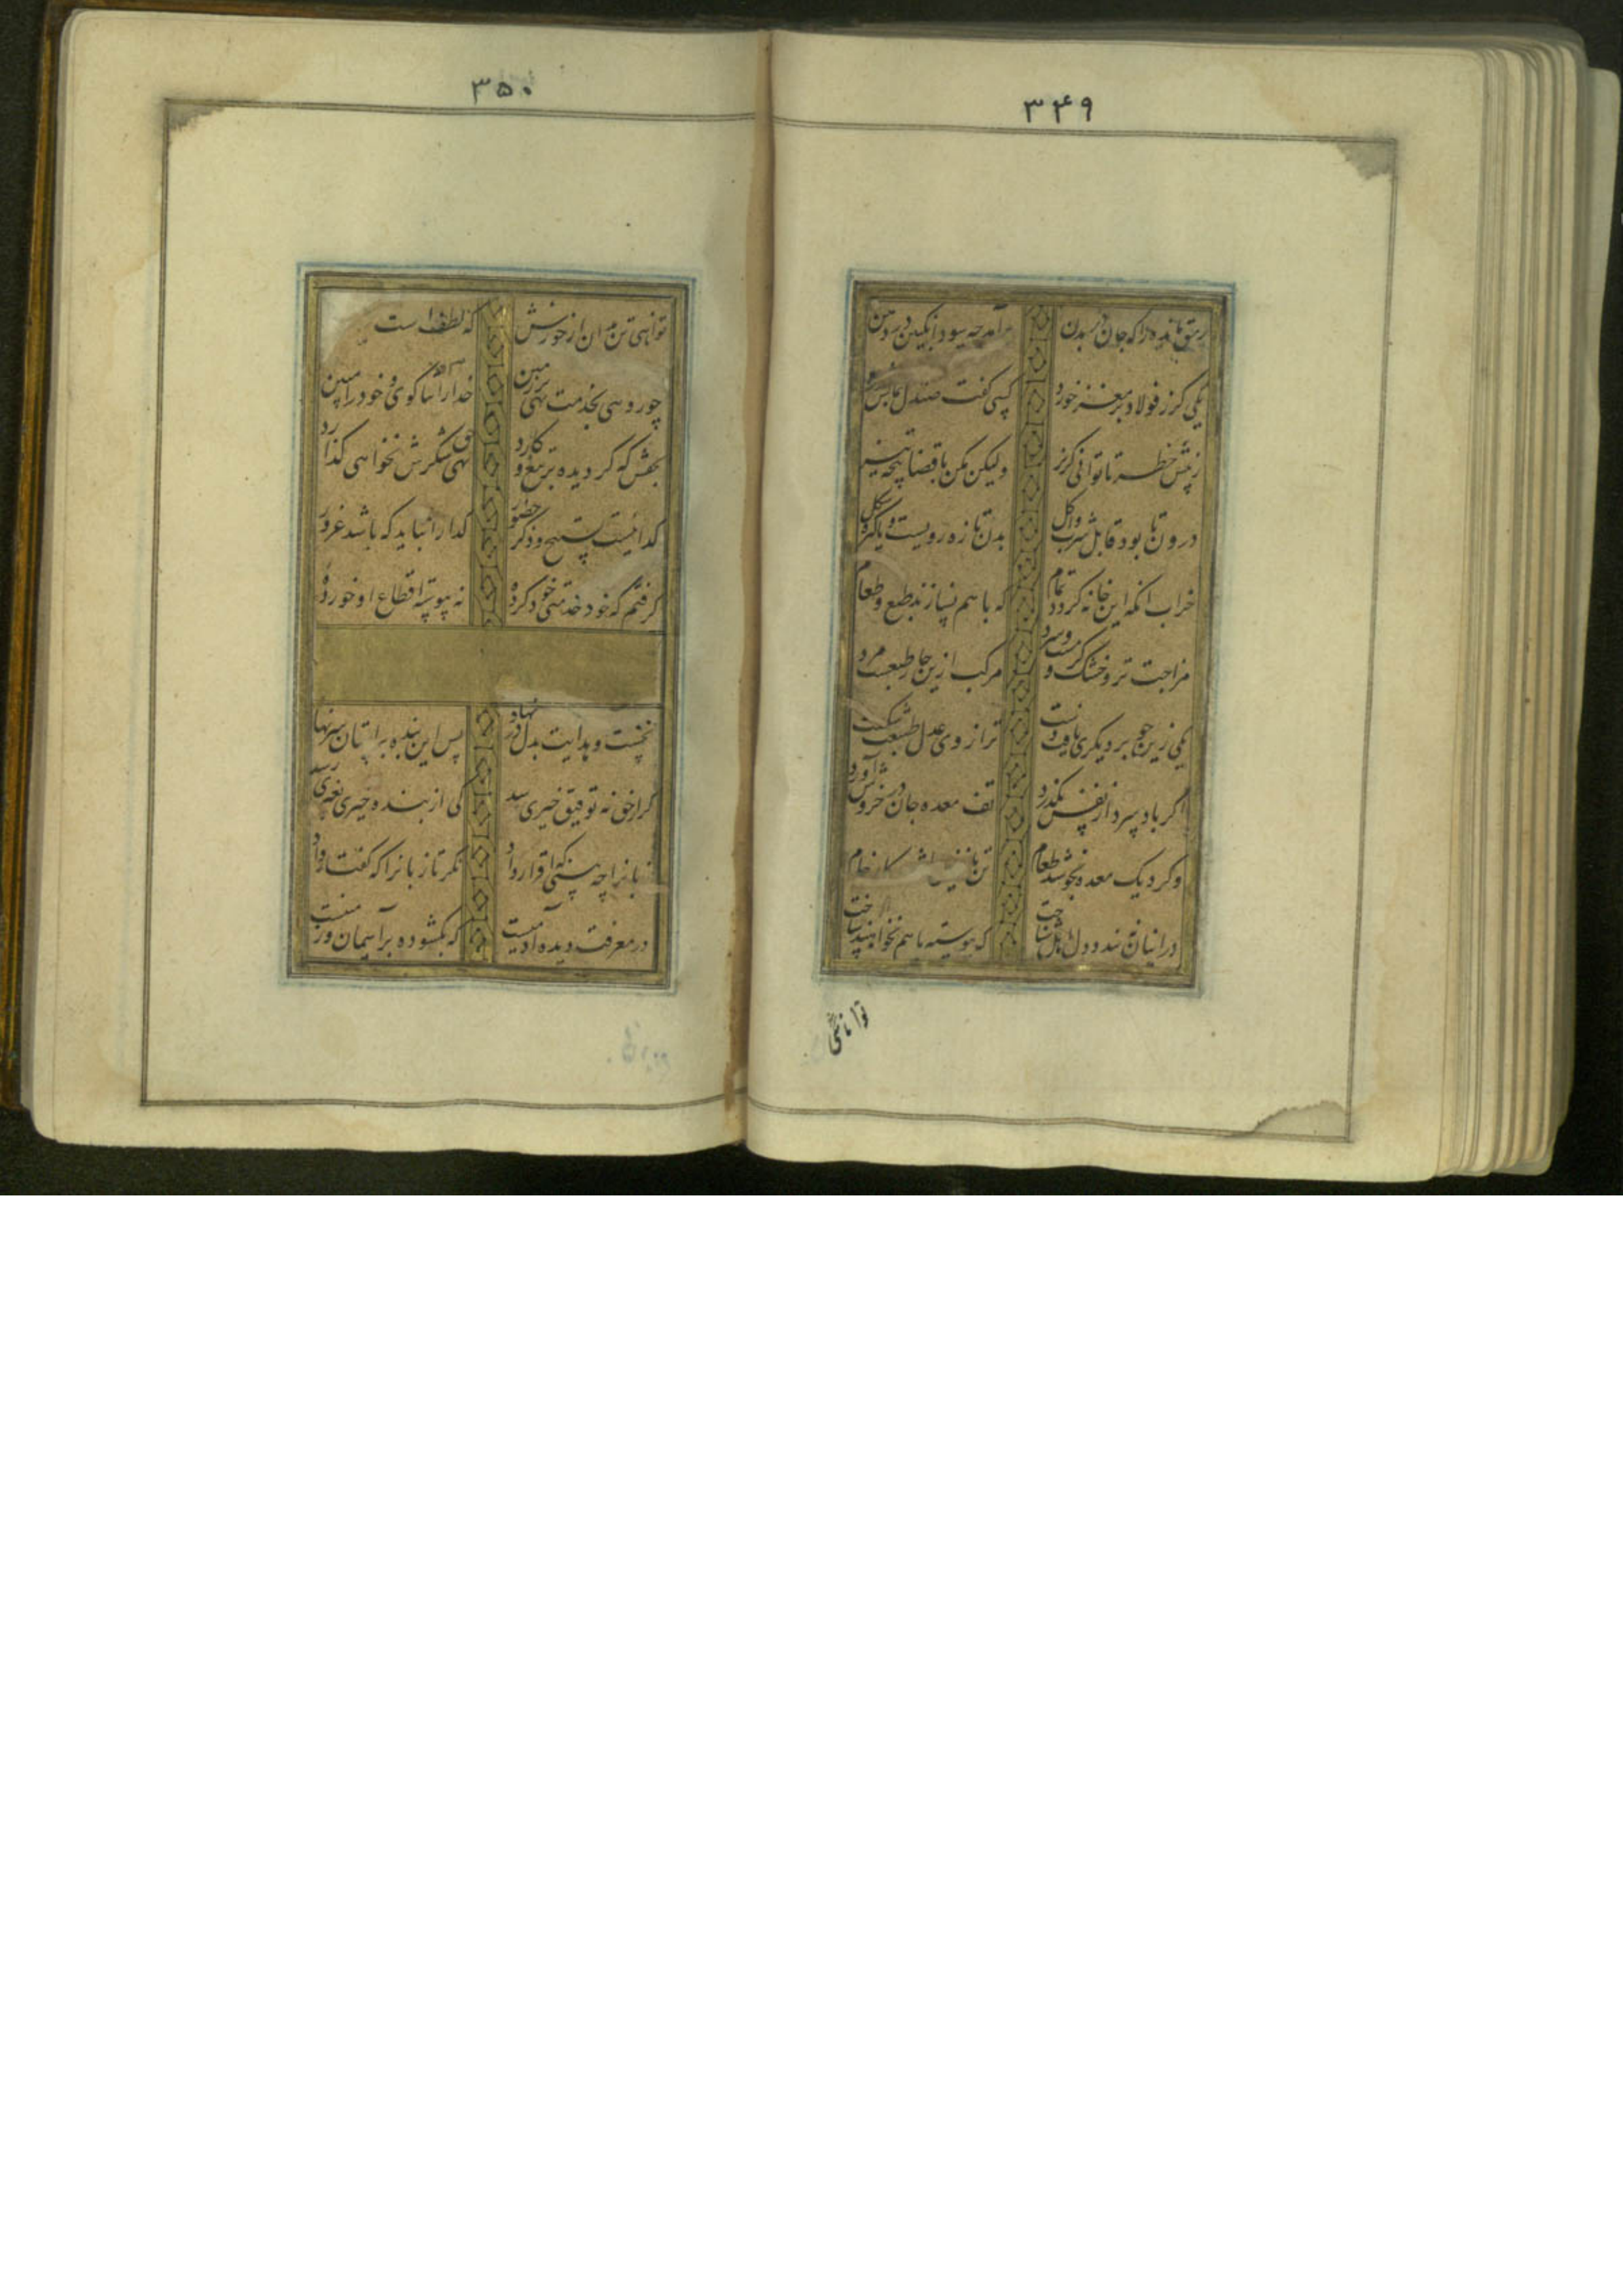 ۳۴۹
رمق مانده را که جان از بدن برآمد چه سود انگبین در دهن
یکی گرز فولاد بر مغز خورد کسی گفت صندل بمالش
ز پیش خطر تا توانی گریز ولیکن مکن با قضا پنجه تیز
درون تا بود قابل شرب و اکل بدن تازه رویست و پاکیزه شکل
خراب آنکه این خانه گردد تمام که با هم نسازند طبع و طعام
مزاجت تر و خشک و گرمست و سرد مرکب ازین چار طبعست مرد
یکی زین چو بر دیگری یافت دست ترازوی عدل طبیعت شکست
اگر باد سرد از نفس نگذرد تف معده جان در خروش آورد
وگر دیگ معده نجوشد طعام تن نازنین را شود کار خام
در اینان نبندد دل اهل شناخت که پیوسته با هم نخواهند ساخت
توانائی
۳۵۰
توانائی تن مدان از خورش که لطف است
چو رویی بخدمت نهی بر زمین خدا را ثنا گوی و خود را مبین
بحقش که گر دیده بر تیغ و کارد نهی حق شکرش نخواهی گذارد
گدائیست تسبیح و ذکر حضور گدا را نباید که باشد غرور
گرفتم که خود خدمتی کرده نه پیوسته اقطاع او خورده
نخست او هدایت بدل در نهاد پس این بنده بر آستان سر نهاد
گر از حق نه توفیق خیری رسد کی از بنده خیری بغیری رسد
زبان را چه بینی که اقرار داد نگر تا زبان را که گفتار داد
در معرفت دیده آدمیست که بگشوده بر آسمان و زمیست